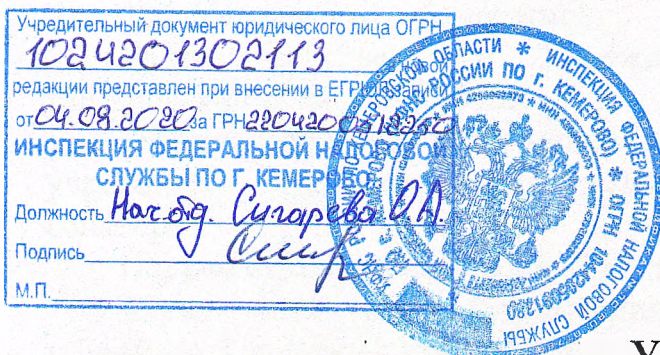 Учредительный документ юридического лица ОГРН
1024201302113
редакции представлен при внесении в ЕГРЮЛ записи
от 04.08.2020 за ГРН
ИНСПЕКЦИЯ ФЕДЕРАЛЬНОЙ НАЛОГОВОЙ
СЛУЖБЫ ПО Г. КЕМЕРОВО
Должность Нач.отд. Сигарева О.А.
Подпись
М.П.
ИНСПЕКЦИЯ ФЕДЕРАЛЬНОЙ НАЛОГОВОЙ СЛУЖБЫ
КЕМЕРОВСКОЙ ОБЛАСТИ
РОССИИ ПО Г. КЕМЕРОВО) * ОГРН
У